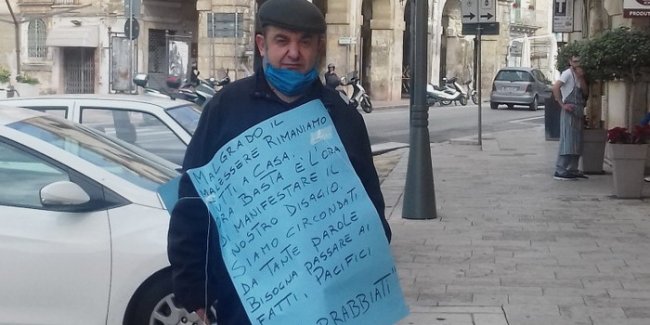 MALGRADO IL
MALESSERE RIMANIAMO
TUTTI A CASA.
ORA BASTA È L'ORA
DI MANIFESTARE IL
NOSTRO DISAGIO.
SIAMO CIRCONDATI
DA TANTE PAROLE
BISOGNA PASSARE AI
FATTI, PACIFICI